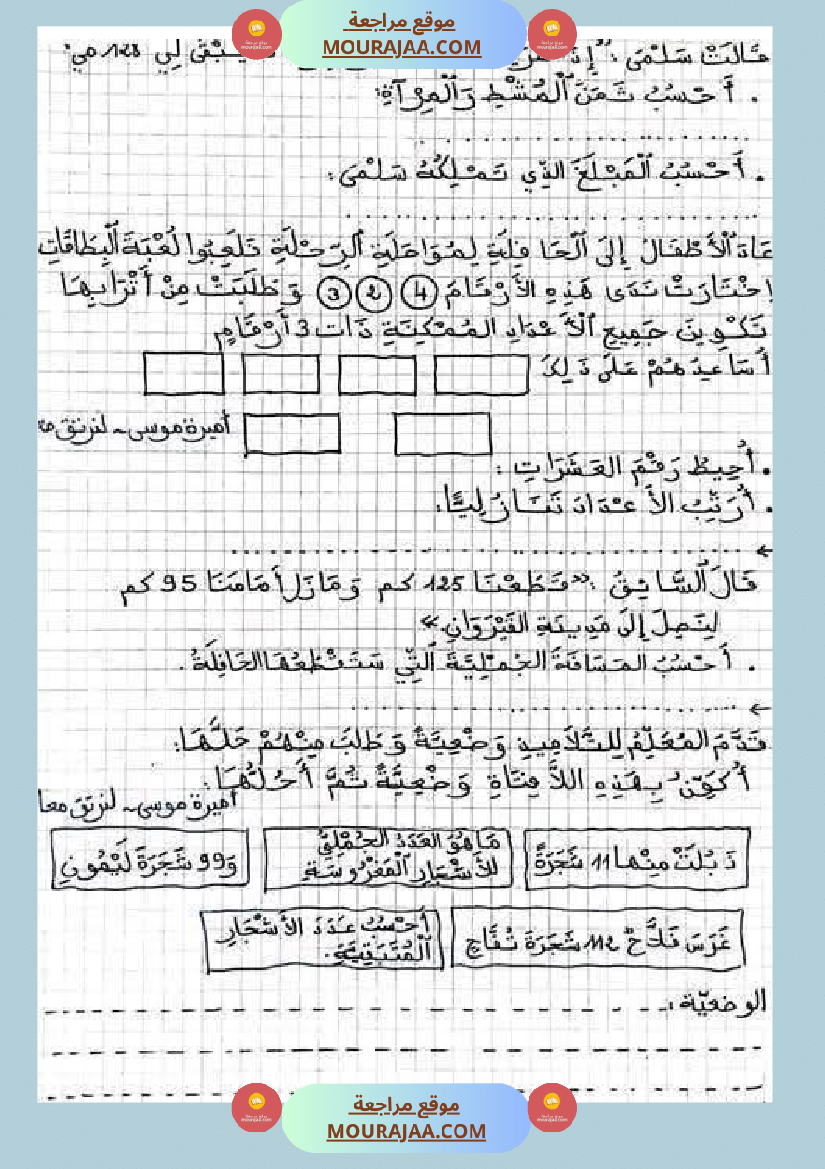 موقع مراجعة
MOURAJAA.COM
قالت سلمى : "إذا يبقى لي 128 مي"
. أحسب ثمن المشط والمرآة:
. أحسب المبلغ الذي تملكه سلمى:
عاد الأطفال إلى الحافلة لمواصلة الرحلة فلعبوا لعبة البطاقات
اختارت ندى هذه الأرقام 4 2 3 وطلبت من أترابها
تكوين جميع الأعداد الممكنة ذات 3 أرقام
أساعدهم على ذلك
أميرة موسى - لنرتق معا
. أحيط رقم العشرات :
. أرتب الأعداد تنازليا:
قال السائق : «قطعنا 125 كم ومازال أمامنا 95 كم
لنصل إلى مدينة القيروان.»
. أحسب المسافة الجملية التي ستقطعها الحافلة.
قدم المعلم للتلاميذ وضعية وطلب منهم حلها:
أكون بهذه اللافتات وضعية ثم أحلها:
أميرة موسى - لنرتق معا
ذبلت منها 11 شجرة
ما هو العدد الجملي للأشجار المغروسة
و99 شجرة ليمون
غرس فلاح 112 شجرة تفاح
أحسب عدد الأشجار المتبقية.
الوضعية :
موقع مراجعة
MOURAJAA.COM